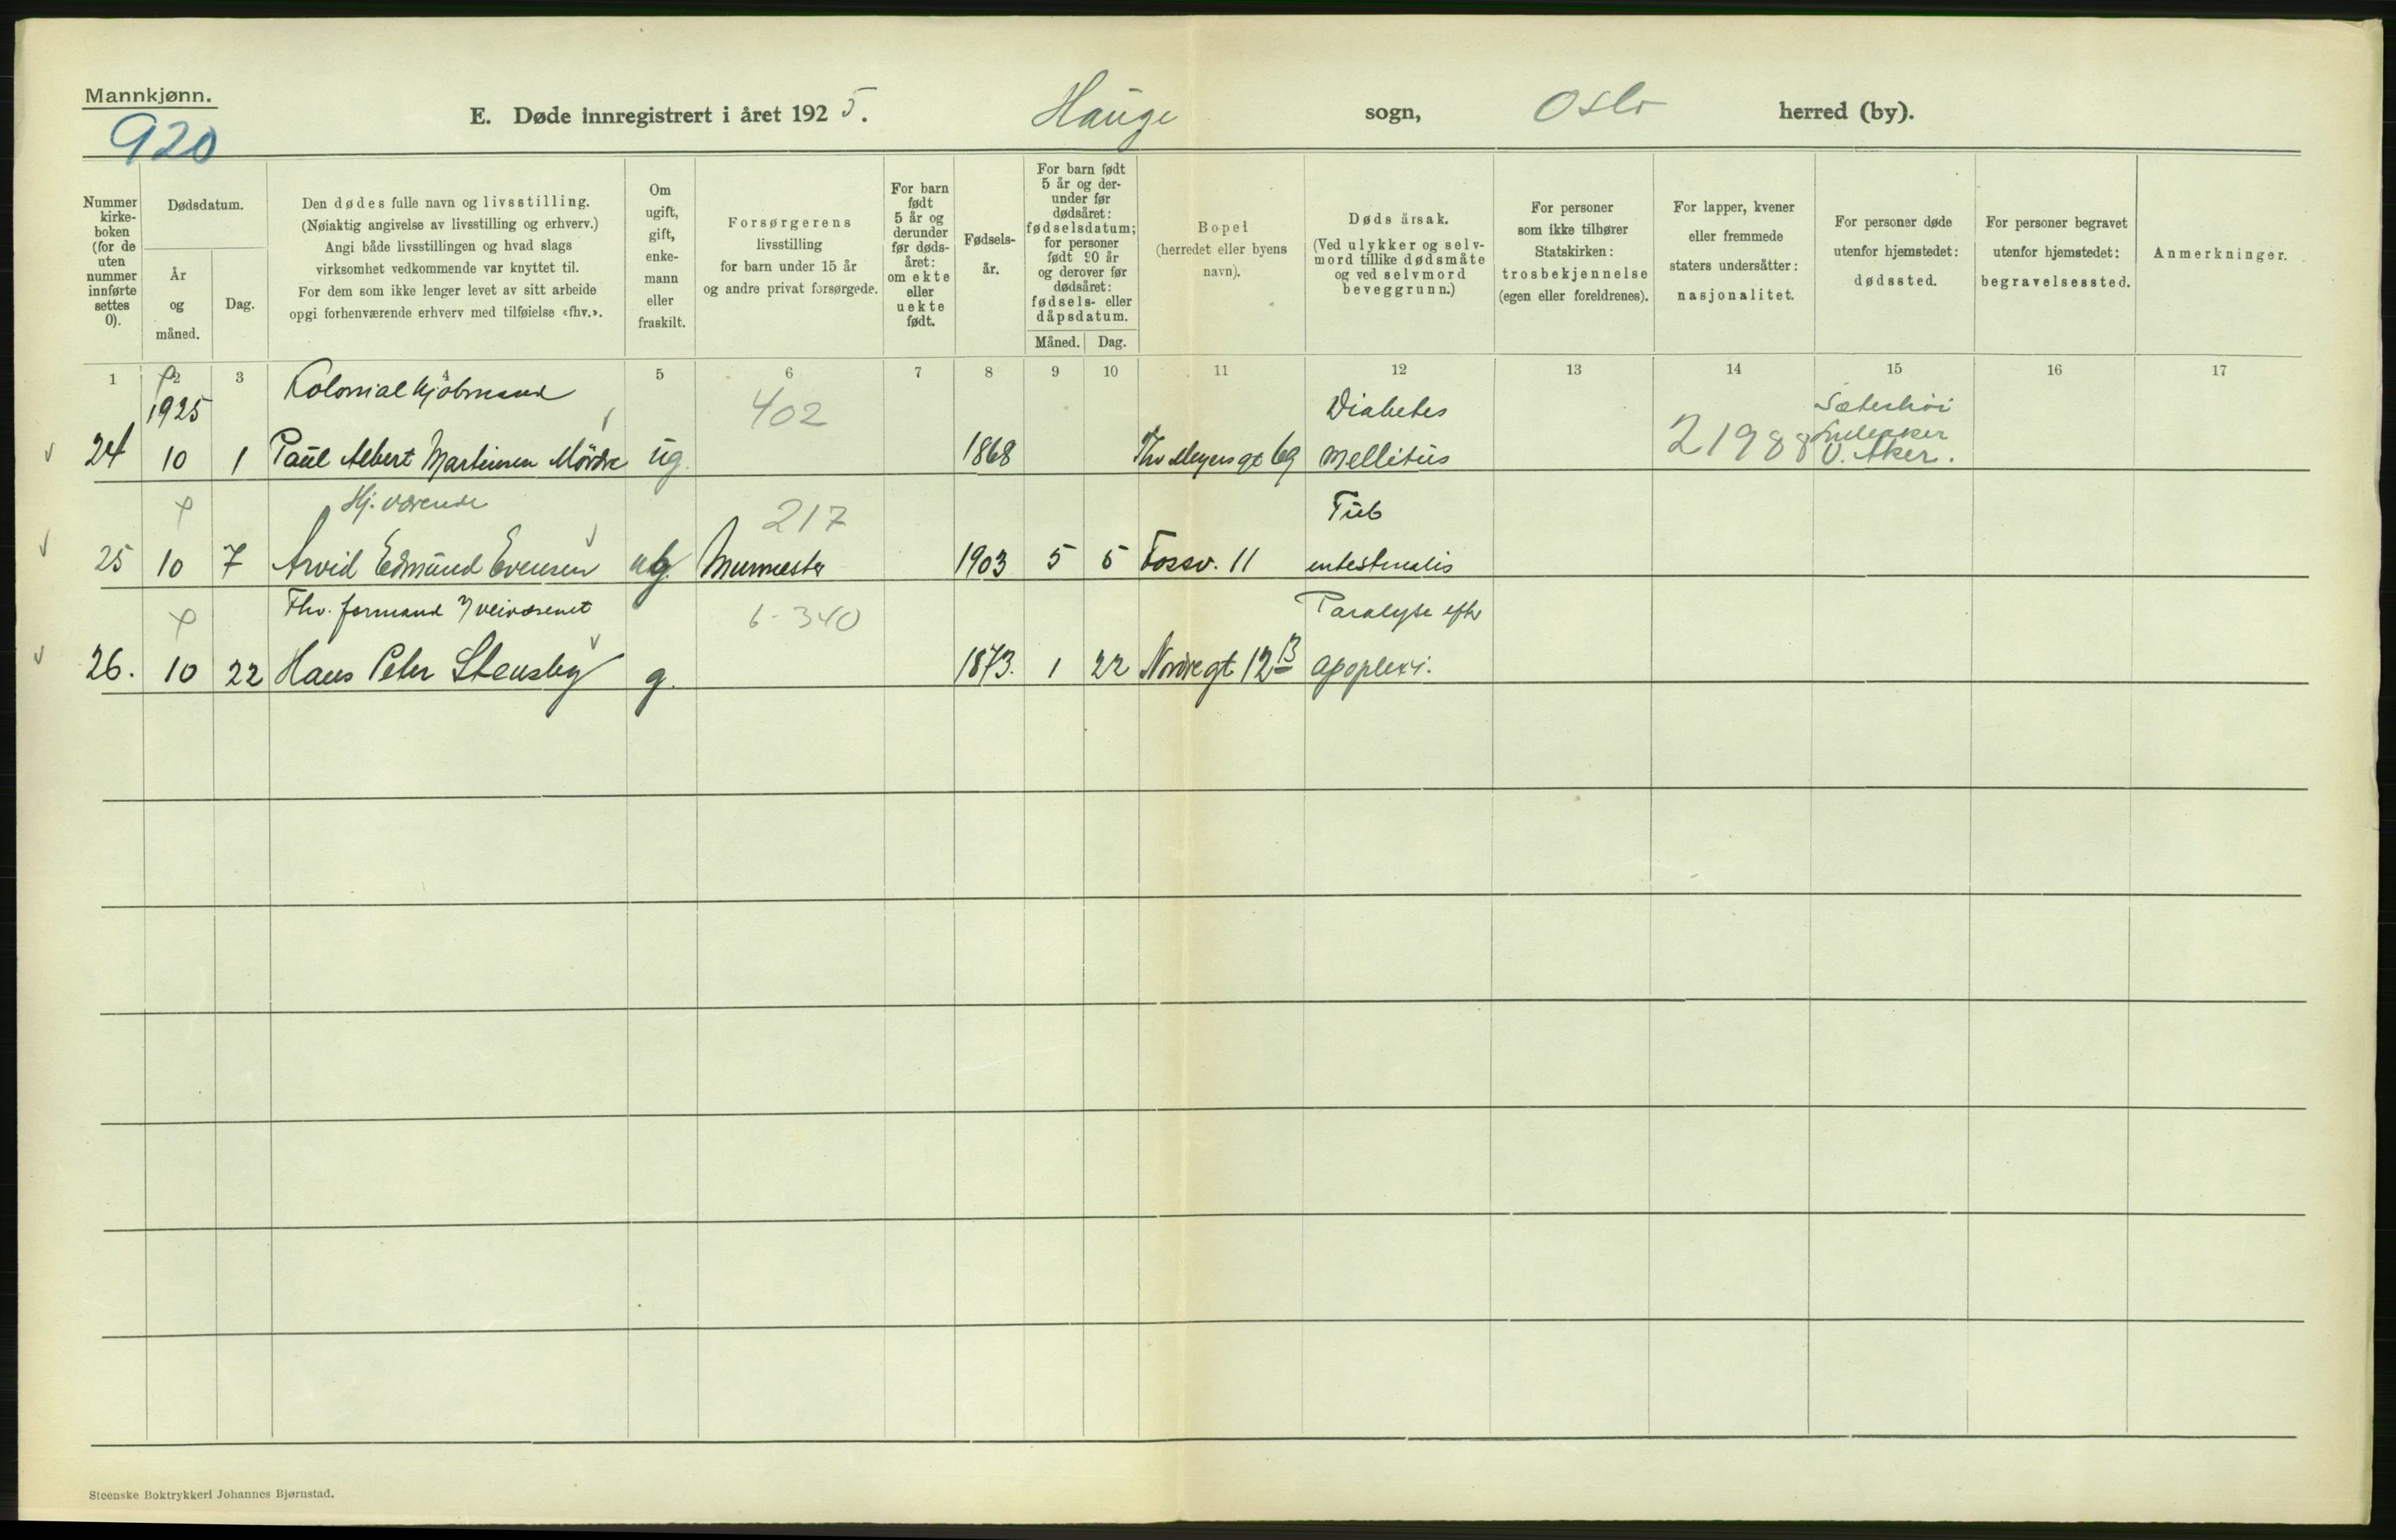 Mannkjønn.
920
E. Døde innregistrert i året 1925. Hauge sogn, Oslo herred (by).
Nummer kirke- boken (for de uten nummer innførte settes 0).
Dødsdatum.
År og måned.
Dag.
Den dødes fulle navn og livsstilling.
(Nøiaktig angivelse av livsstilling og erhverv.)
Angi både livsstillingen og hvad slags
virksomhet vedkommende var knyttet til.
For dem som ikke lenger levet av sitt arbeide
opgi forhenværende erhverv med tilføielse «fhv.».
Om ugift, gift, enke- mann eller fraskilt.
Forsørgerens
livsstilling
for barn under 15 år
og andre privat forsørgede.
For barn født 5 år og derunder før døds- året: om ekte eller uekte født.
Fødsels- år.
For barn født 5 år og der- under før dødsåret: fødselsdatum; for personer født 90 år og derover før dødsåret: fødsels- eller dåpsdatum.
Måned. Dag.
Bopel
(herredet eller byens
navn).
Dødsårsak.
(Ved ulykker og selv-
mord tillike dødsmåte
og ved selvmord
beveggrunn.)
For personer
som ikke tilhører
Statskirken:
trosbekjennelse
(egen eller foreldrenes).
For lapper, kvener
eller fremmede
staters undersåtter:
nasjonalitet.
For personer døde
utenfor hjemstedet:
dødssted.
For personer begravet
utenfor hjemstedet:
begravelsessted.
Anmerkninger.
1 2 3 4 5 6 7 8 9 10 11 12 13 14 15 16 17
1925 Kolonialkjøbmand 402 Diabetes Sæterhøi
24 10 1 Paul Albert Martinsen Mördre ug. 1868 Thv Meyers gt 69 Mellitus 21988 Lilleaker
V. Aker.
Hj. værende 217 Tub
25 10 7 Arvid Edmund Evensen ug. Murmester 1903 5 5 Fossv. 11 intestinalis
Fhv. formand v/ veivæsenet 6-340 Paralyse efter
26. 10 22 Hans Peter Stensby g. 1873. 1 22 Nordregt 12 B apoplexi.
Steenske Boktrykkeri Johannes Bjørnstad.